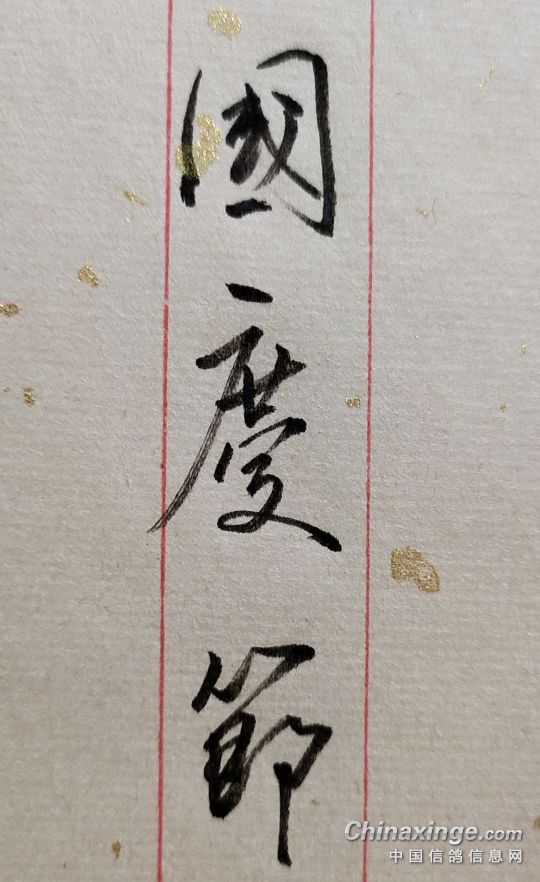 國慶節
Chinaxinge.com
中国信鸽信息网